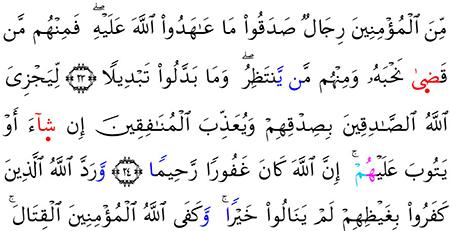 مِّنَ ٱلْمُؤْمِنِينَ رِجَالٌ صَدَقُوا۟ مَا عَـٰهَدُوا۟ ٱللَّهَ عَلَيْهِ ۖ فَمِنْهُم مَّن
قَضَىٰ نَحْبَهُۥ وَمِنْهُم مَّن يَنتَظِرُ ۖ وَمَا بَدَّلُوا۟ تَبْدِيلًا ﴿٢٣﴾ لِّيَجْزِىَ
ٱللَّهُ ٱلصَّـٰدِقِينَ بِصِدْقِهِمْ وَيُعَذِّبَ ٱلْمُنَـٰفِقِينَ إِن شَآءَ أَوْ
يَتُوبَ عَلَيْهِمْ ۚ إِنَّ ٱللَّهَ كَانَ غَفُورًا رَّحِيمًا ﴿٢٤﴾ وَرَدَّ ٱللَّهُ ٱلَّذِينَ
كَفَرُوا۟ بِغَيْظِهِمْ لَمْ يَنَالُوا۟ خَيْرًا ۚ وَكَفَى ٱللَّهُ ٱلْمُؤْمِنِينَ ٱلْقِتَالَ ۚ